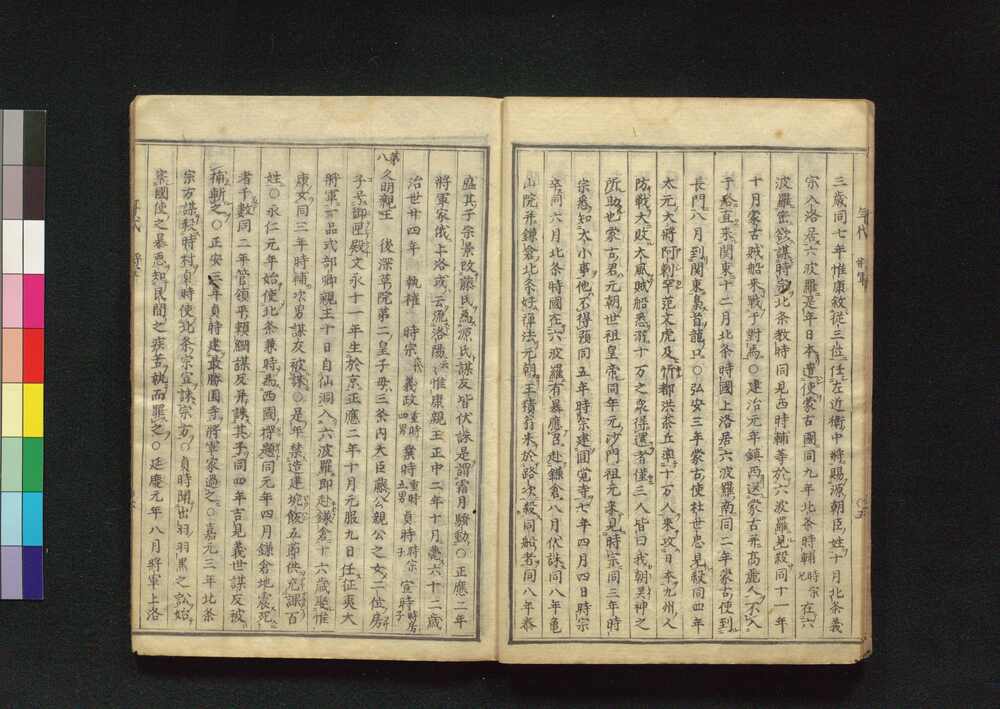 三歳同七年惟康敘從三位任左近衛中將賜源朝臣姓十月北条義
宗入洛居六波羅是年日本遣使蒙古國同九年北条時輔時宗兄在六
波羅蜜欲謀時宗北条教時同見西時輔等於六波羅見殺同十一年
十月蒙古賊船來戰于對馬〇建治元年鎮西送蒙古并高麗人不入
于京直來関東十二月北条時國上洛居六波羅南同二年蒙古使到
長門八月到関東梟首龍口〇弘安三年蒙古使杜世忠見殺同四年
太元大將阿剌罕范文虎及忻都洪茶丘率十万人來攻日本九州人
防戰大敗大風賊船悉溺十万之衆得還者僅三人皆曰我朝昊神之
所助也蒙古君元朝世祖皇帝同年元沙門祖元來見時宗同三年時
宗悉知大小事他不得預同五年時宗建圓覚寺七年四月四日時宗
卒同六月北条時國在六波羅有暴應召赴鎌倉八月伏誅同八年亀
山院并鎌倉北条好禪法元朝王積翁来於路次殺同船者同八年泰
盛其子宗景改藤氏為源氏謀友皆伏誅是謂霜月騒動〇正應二年
將軍家俄上洛或云流洛陽惟康親王正中二年十月薨六十二歳
治世廿四年 執權 時宗 義政重時四男 業時重時五男 貞時時宗子 宣時時房子
第八 久明親王 後深草院第二皇子母三条内大臣藤公親公之女二位房
子号御匣殿文永十一年生於京正應二年十月元服九日任征夷大
將軍一品式部卿親王十日自仙洞入六波羅即赴鎌倉十六歳娶惟
康女同三年時輔次男謀友被誅〇是年禁造建垸飯五節供充課百
姓〇永仁元年始使北条兼時為西國探題同元年四月鎌倉地震死
者千數同二年管領平頼綱謀反并誅其子同四年吉見義世謀反被
捕斬之〇正安三年貞時建最勝園寺將軍家過之〇嘉元三年北条
宗方謀殺時村貞時使北条宗宣誅宗方〇貞時聞出羽羽黒之訟始
察國使之暴悪知民間之疾苦執而罪之〇延慶元年八月將軍上洛
年代